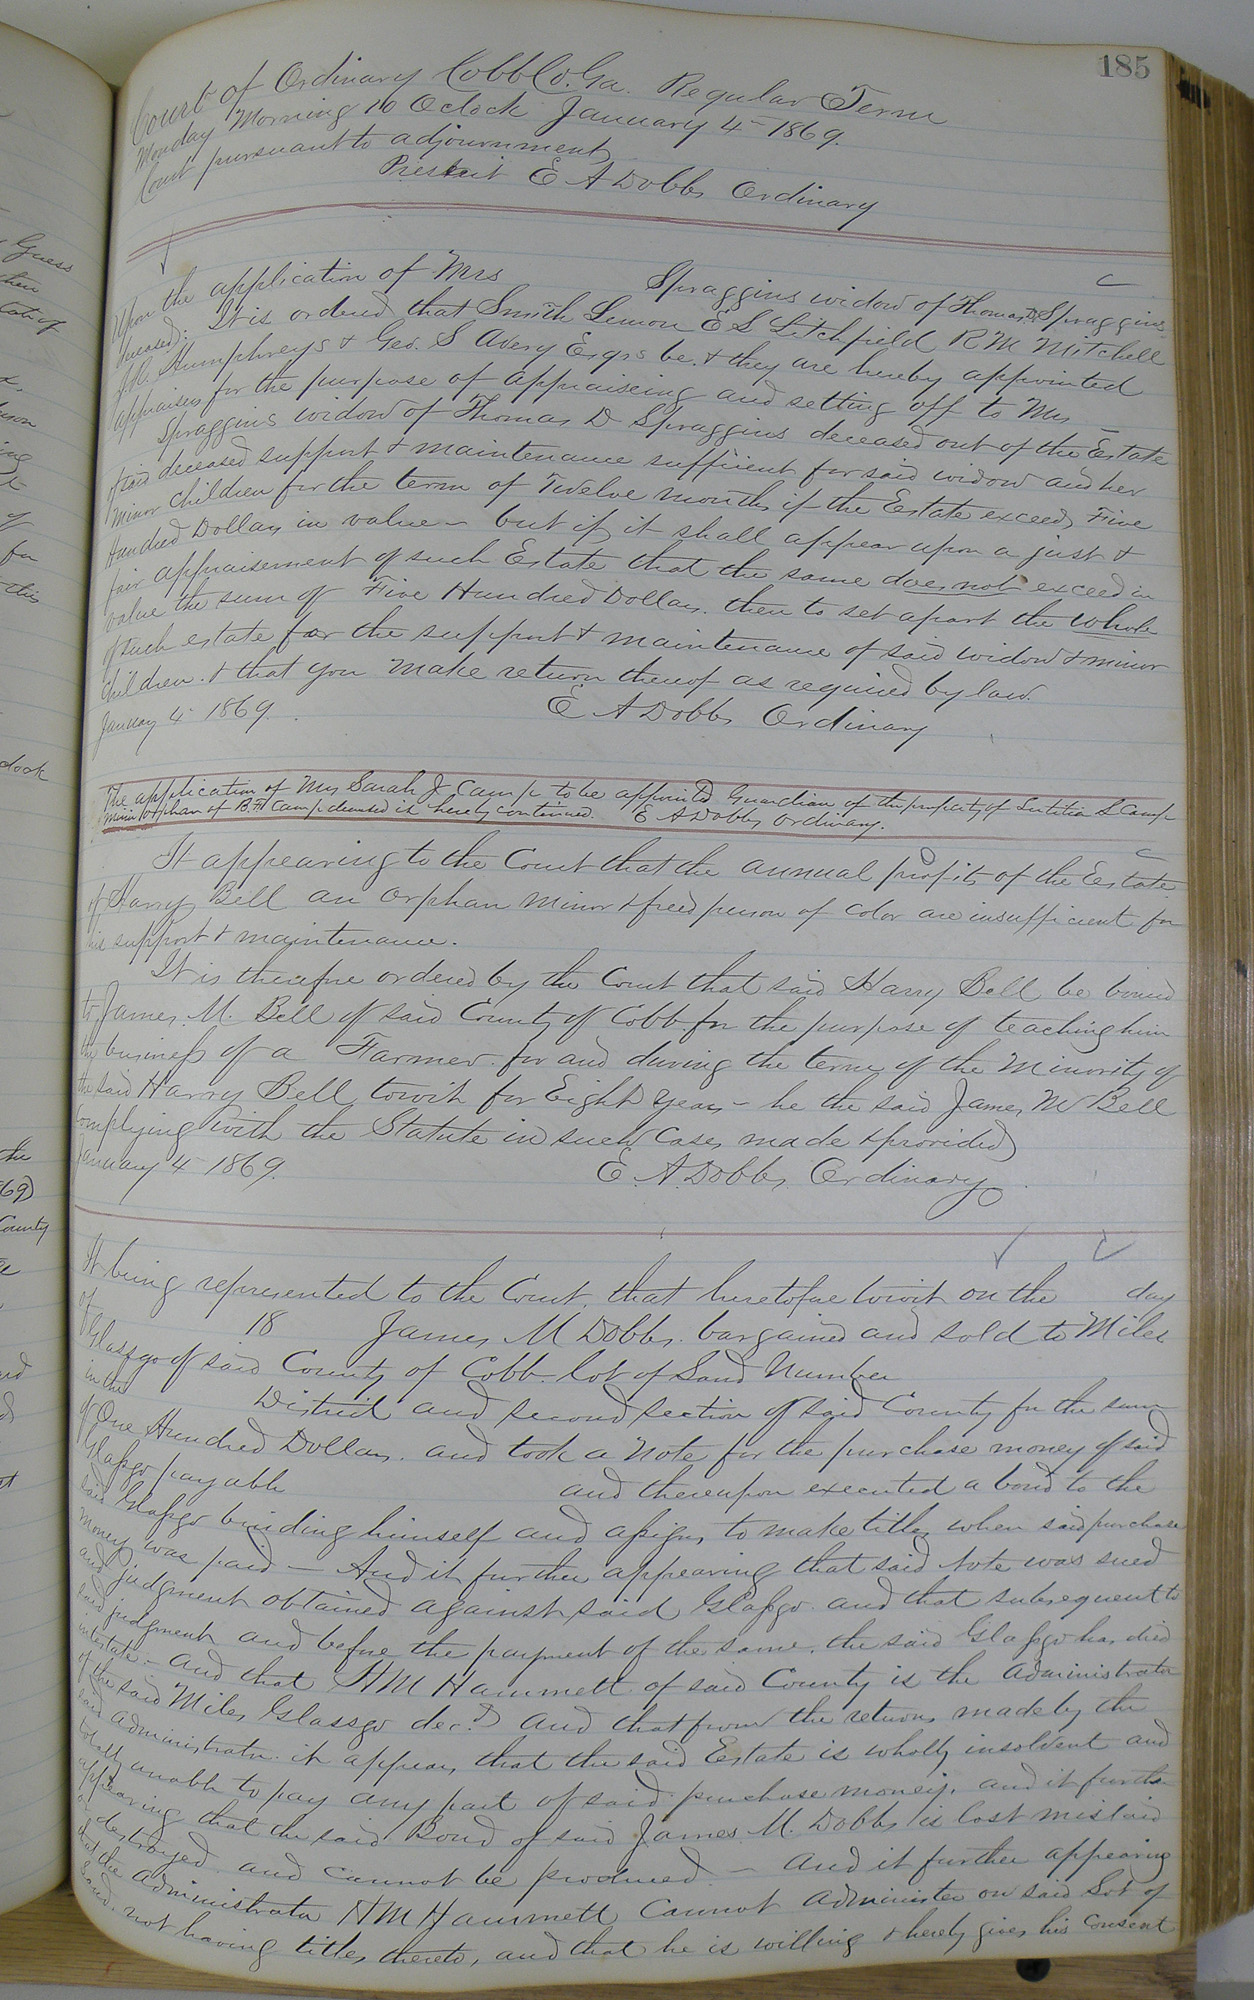 185
Court of Ordinary Cobb Co. Ga. Regular Term
Monday Morning 10 Oclock January 4 1869.
Court pursuant to adjournment
Present E A Dobbs Ordinary
Upon the application of Mrs Spraggins widow of Thomas D. Spraggins
deceased: It is ordered that Smith Lemon E S Litchfield R M Mitchell
Humphreys & Geo. S Avery Esqrs be. & they are hereby appointed
appraisers for the purpose of appraiseing and setting off to Mrs
Spraggins widow of Thomas D Spraggins deceased out of the Estate
of said deceased support & maintenance sufficient for said widow and her
minor children for the term of Twelve months if the Estate exceeds Five
Hundred Dollars in value – but if it shall appear upon a just &
fair appraisement of such Estate that the same does not exceed in
value the sum of Five Hundred Dollars. then to set apart the whole
of such estate for the support & maintenance of said widow & minor
children. & that you make return thereof as required by law.
January 4 1869. E A Dobbs Ordinary
The application of Mrs Sarah J Camp to be appointed Guardian of the property of S Camp
minor orphan of Camp deceased is hereby continued. E A Dobbs Ordinary.
It appearing to the Court that the annual profits of the Estate
of Harry Bell an orphan minor & freed person of color are insufficient for
his support & maintenance.
It is therefore ordered by the Court that said Harry Bell be bound
to James. M. Bell of said County of Cobb for the purpose of teaching him
the business of a Farmer. for and during the term of the Minority of
the said Harry Bell towit for Eight years – he the said James M Bell
complying with the Statute in such cases made & provided
January 4 1869. E. A. Dobbs Ordinary
It being represented to the Court. that heretofore towit on the day
of 18 James M Dobbs. bargained and sold to Miles
Glassgo of said County of Cobb lot of Land Number
in the District and second section of said County for the sum
of One Hundred Dollars. and took a Note for the purchase money of said
Glassgo payable and thereupon executed a bond to the
said Glassgo binding himself and assigns to make titles when said purchase
money was paid – And it further appearing that said Note was sued
and judgment obtained against said Glassgo and that subsequent to
said judgment and before the payment of the same. the said Glassgo has died
intestate – and that H M Hammett of said County is the administrator
of the said Miles Glassgo decd and that from the returns made by the
said administrator it appears that the said Estate is wholly insolvent and
totally unable to pay any part of said purchase money. and it further
appearing that the said Bond of said James. M. Dobbs is lost mislaid
or destroyed and cannot be produced – and it further appearing
that the administrator H M Hammett Cannot administer on said Lot of
Land. not having titles thereto, and that he is willing & hereby gives his consent